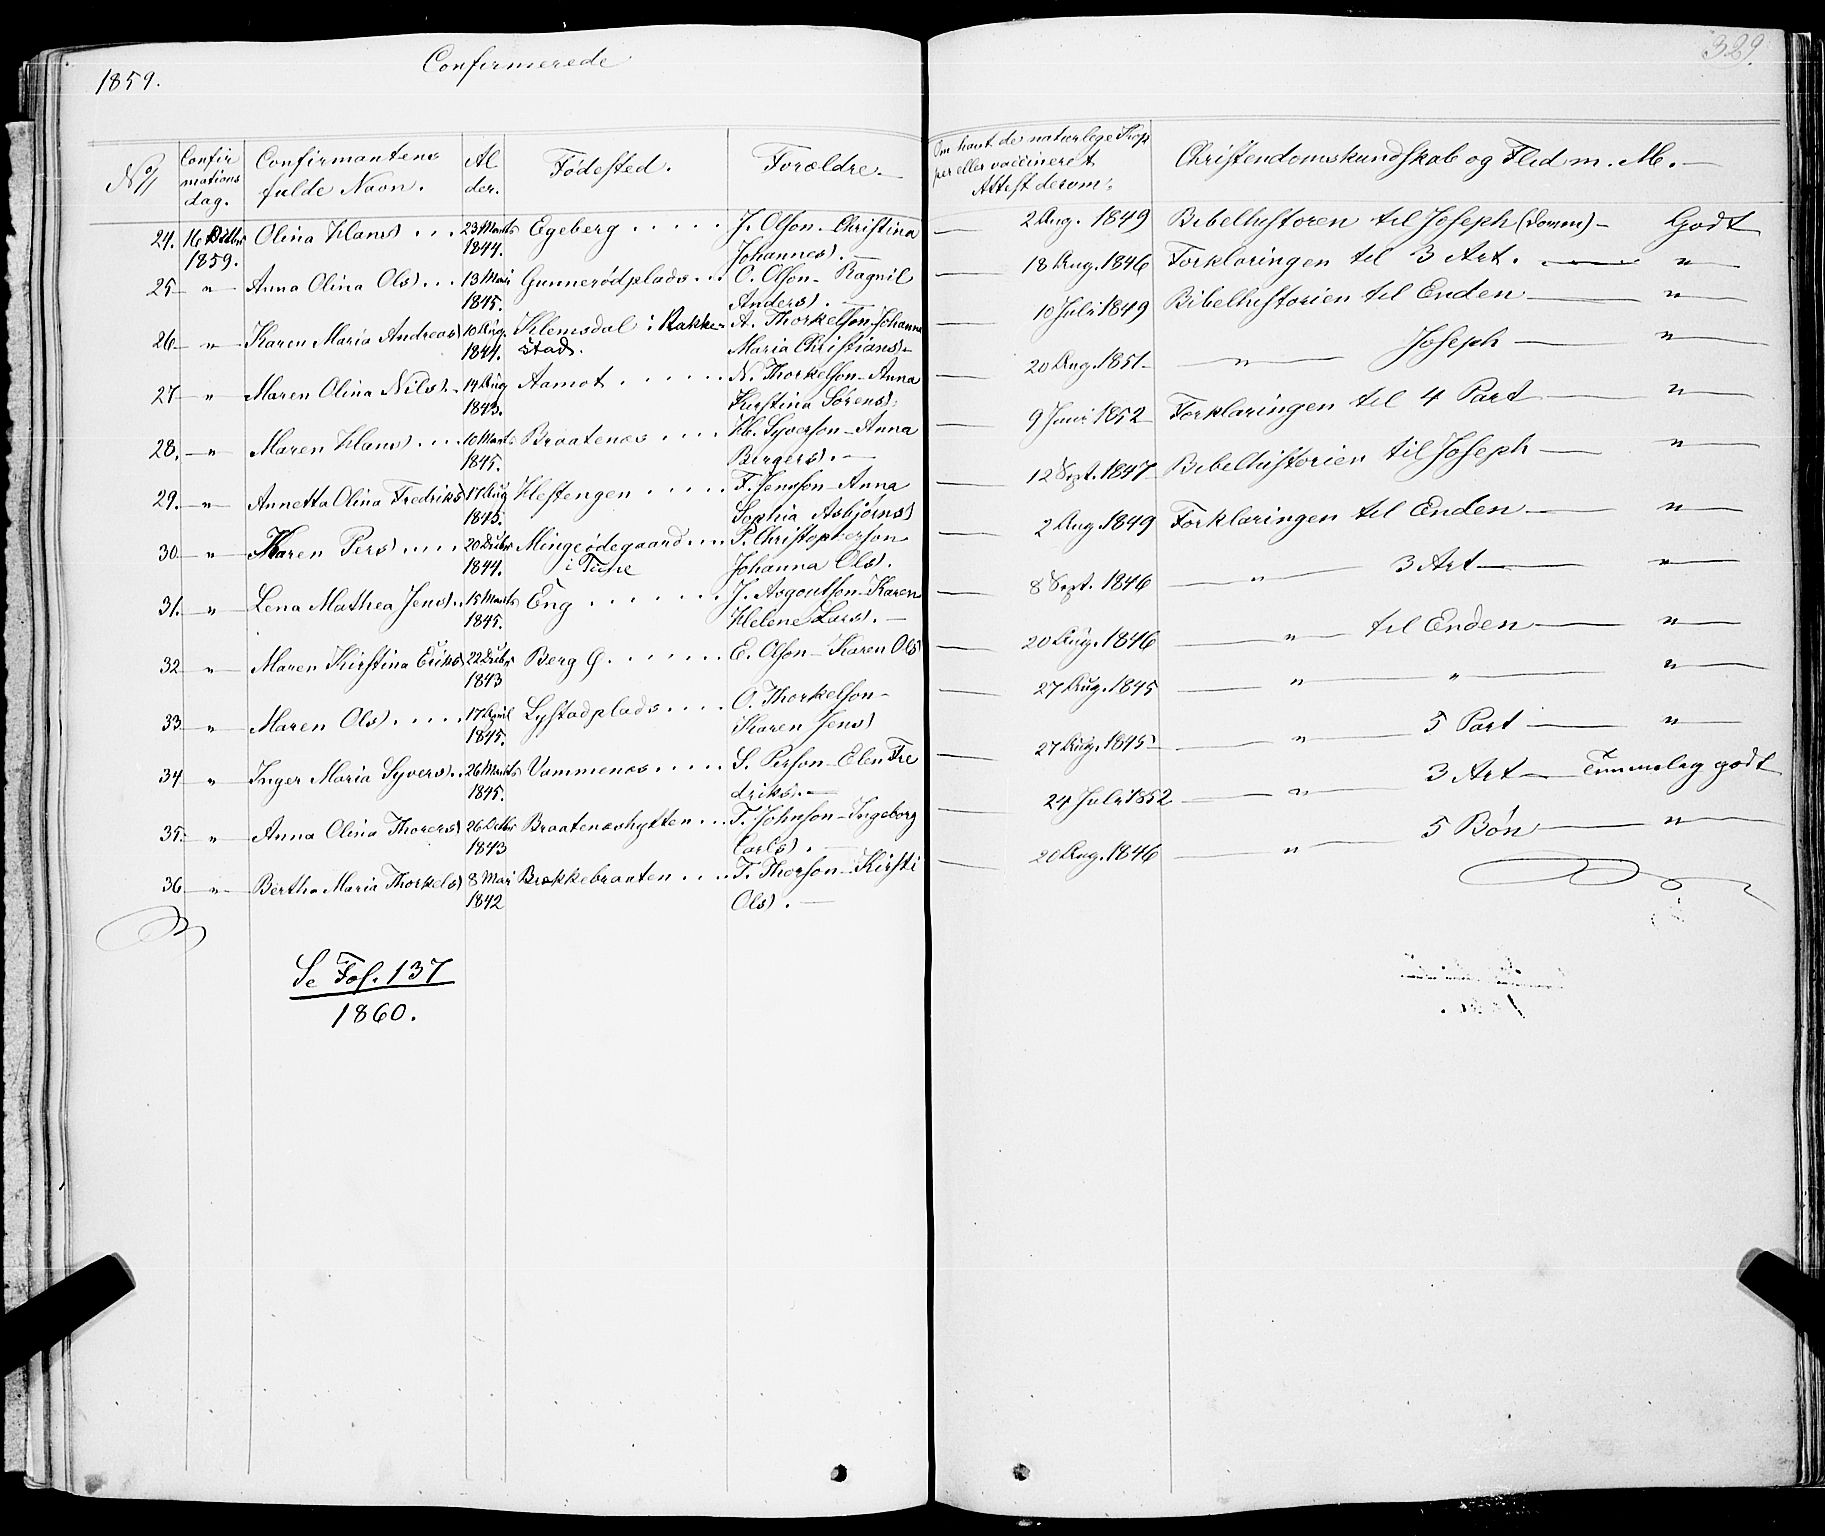 1859.
Confirmerede
329.
No/
Confir
mations
dag.
Confirmantens
fulde Navn.
Al
der.
Fødested.
Forældre.
Om havt de naturlige Kop
per eller vaccineret
Attest derom:
Christendomskundskab og Flid m. M.
24. 16 Octbr Olina Hans) . . . 23 Marts Egeberg . . . . . J. Olson - Christina — 2 Aug. 1849 Bibelhistoren til Joseph (Domm) — Godt
1859. 1844. Johannes). —
25 — " — Anna Olina Ols) . . . 13 Mai Gunnerødplads . . . O. Olson - Ragnil — 18 Aug. 1846 Forklaringen til 3 Art. — " —
1845. Anders). —
26 — " — Karen Maria Andreas) 10 Aug. Klemsdal i Rakke- A. Thorkelson - Johanna — 10 Juli 1849 Bibelhistorien til Enden — " —
1844. stad. Maria Christians) —
27 — " — Maren Olina Nils). — 14 Aug Aamot . . . . . . N. Thorkelson - Anna — 20 Aug. 1851 — " — Joseph — " —
1843. Kirstina Sørens).
28. — " — Maren Hans) . . . . 10 Marts Braatenæs . . . . H. Syverson - Anna — 9 Juni 1852 Forklaringen til 4 Part — " —
1845. Bergers). —
29. — " — Annetta Olina Fredriks) 17 Aug Hestengen . . . . . F. Jensson - Anna — 12 Sept. 1847 Bibelhistorien til Joseph — " —
1845. Sophia Asbjørns)
30 — " — Karen Pers) . . . . . 20 Decbr Mingeødegaard . . . P. Christopherson — 2 Aug. 1849 Forklaringen til Enden — " —
1844. i Tune Johanna Ols).
31. — " — Lena Mathea Jens) . . 15 Marts Eng . . . . . . . J. Asgoutson - Karen — 8 Sept. 1846 — " — 3 Art — " —
1845. Helene Lars). —
32 — " — Maren Kirstina Eriks) 22 Decbr Berg G . . . . . . E. Olson - Karen Ols) — 20 Aug. 1846 — " — til Enden — " —
1843
33 — " — Maren Ols) . . . . . 17 April Lystadplads . . . . O. Thorkelson — 27 Aug. 1845 — " — " — " —
1845. Karen Jens)
34 — " — Inger Maria Syvers) . . 26 Marts Vammenæs . . . . . S. Person - Elen Fre — 27 Aug. 1845 — " — 5 Part — " —
1845. driks). —
35 — " — Anna Olina Thorers) 26 Octbr Braatenæshytten . . . T. Johnson - Ingeborg — 24 Juli 1852 — " — 3 Art — Temmelig godt
1843 Carls). —
36 — " — Bertha Maria Thorkels) 8 Mai Brækkebraaten . . . T. Thorson - Kirsti — 20 Aug. 1846 — " — 5 Bøn — " —
1842 Ols). —
Se Fol. 137
1860.